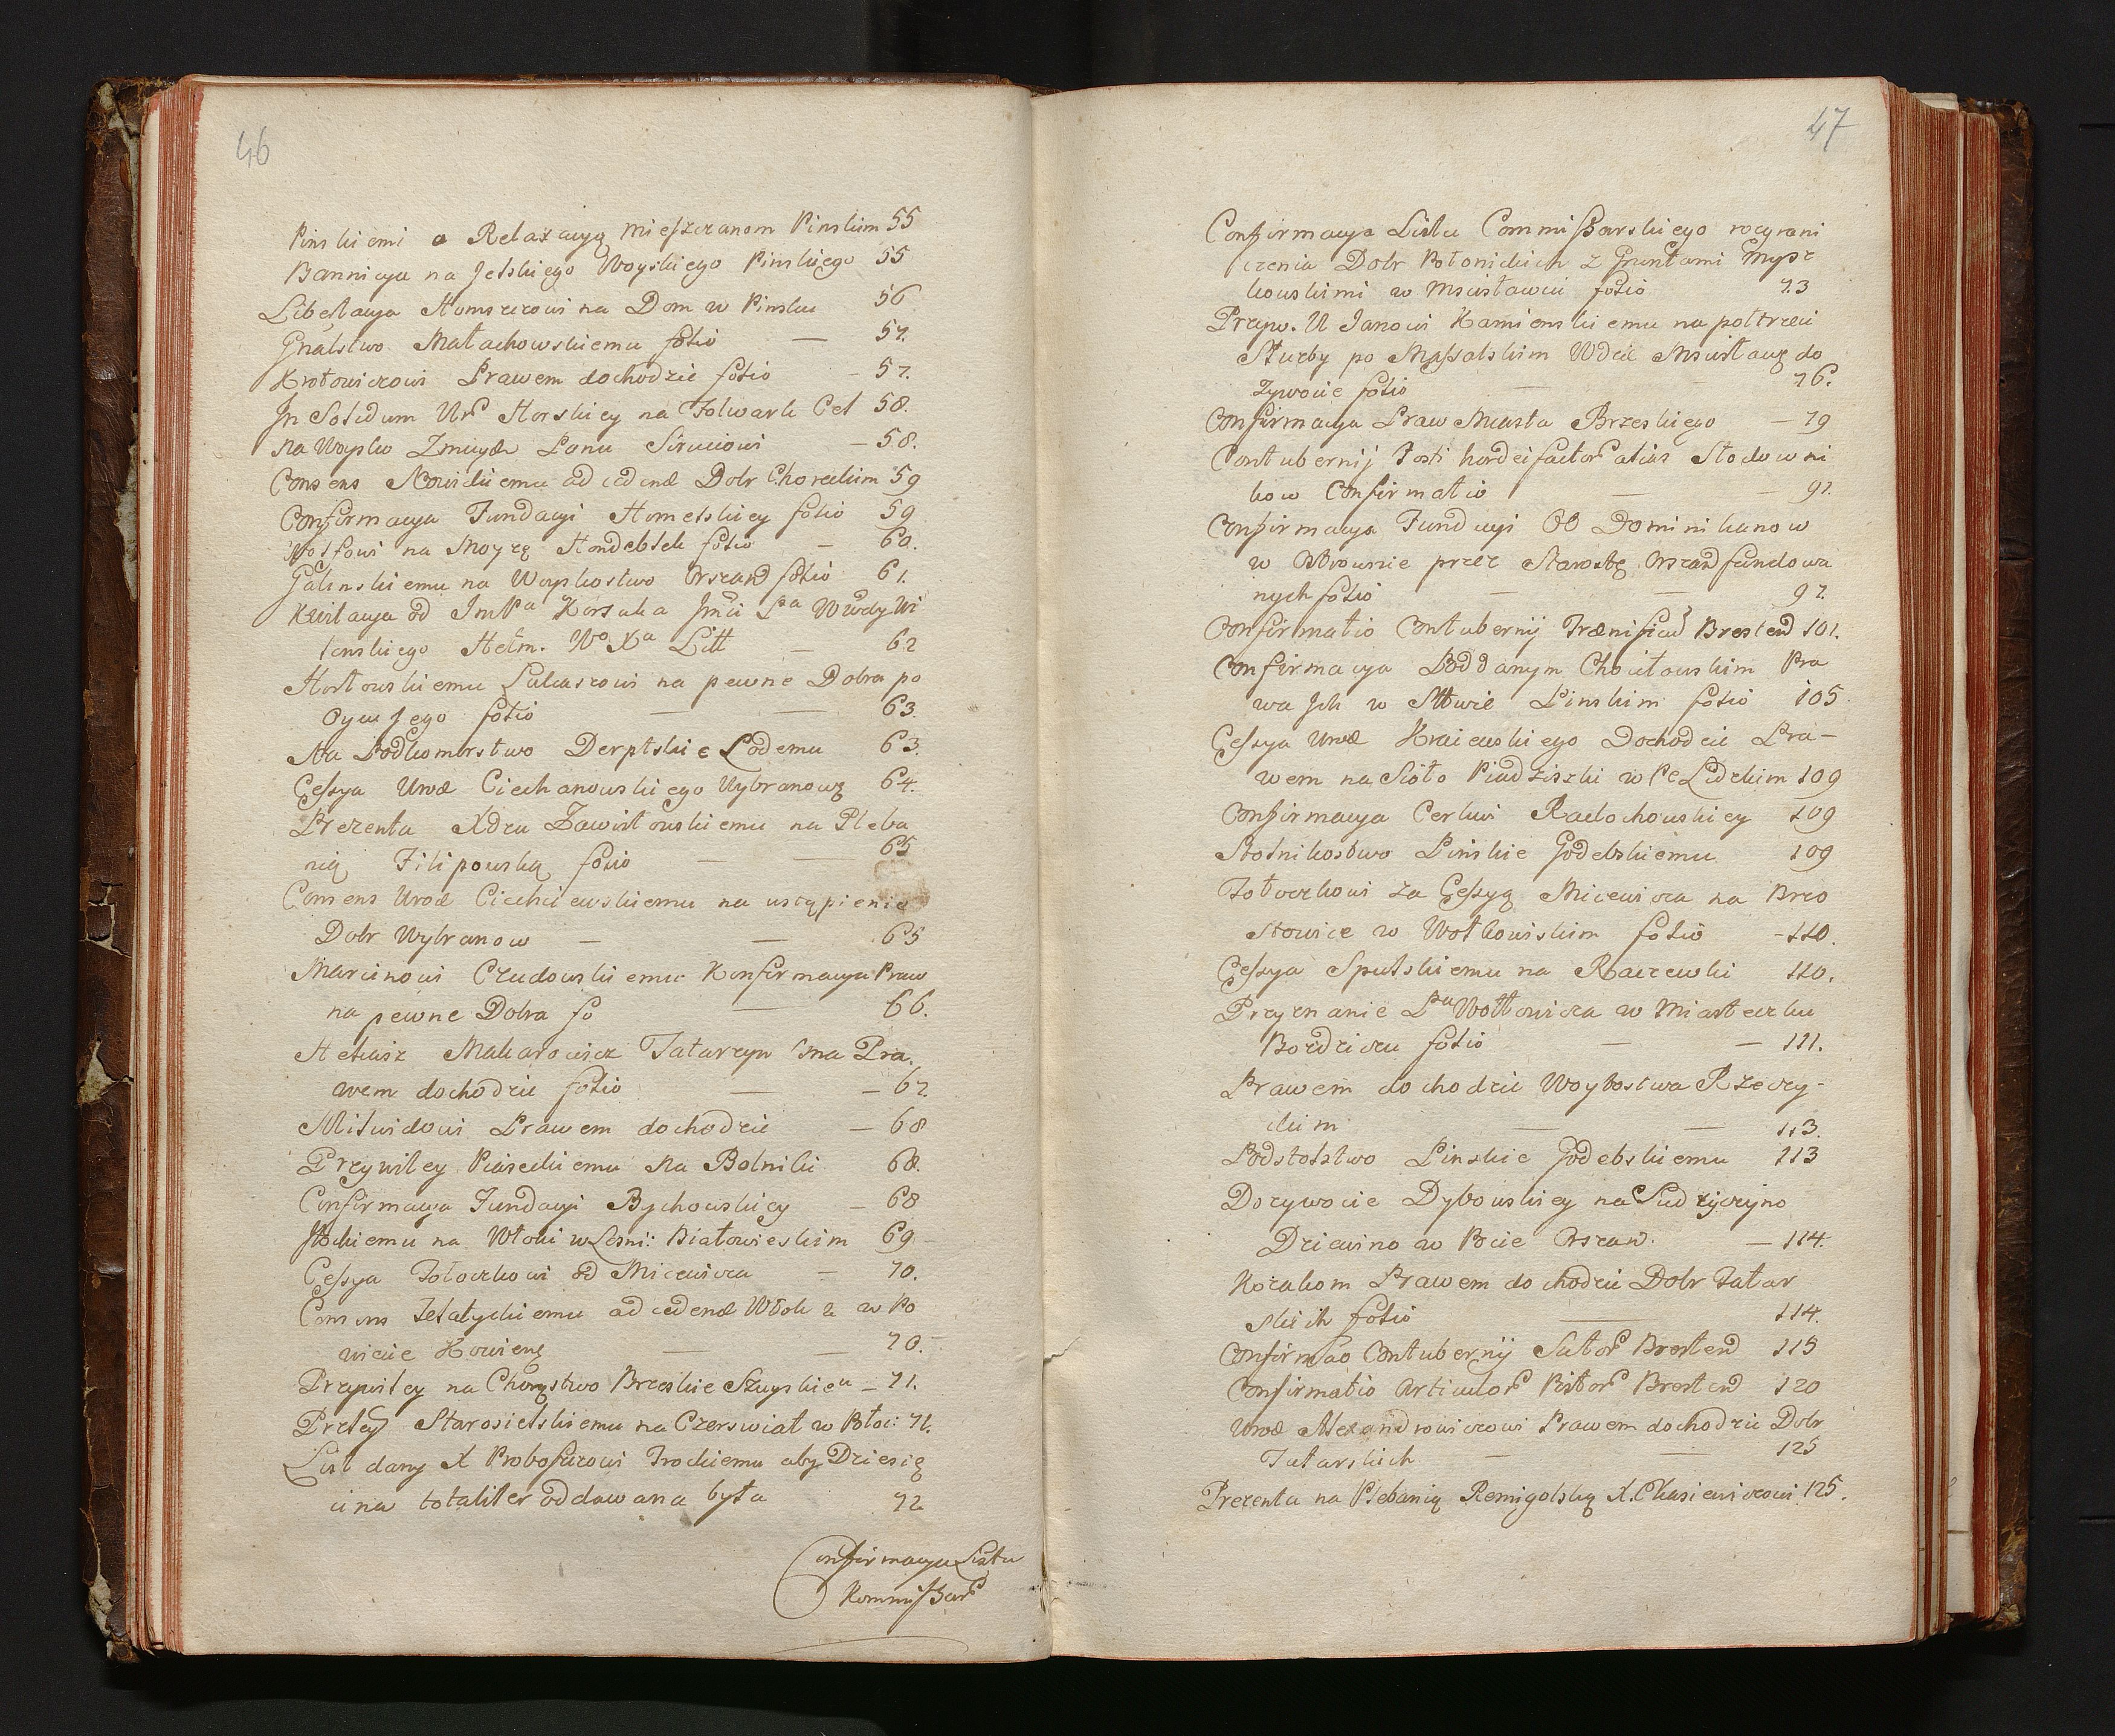 46
Pinskiemi o Relaxacyą Mieszczanom Pinskim 55
Bannicya na Jelskiego Woyskiego Pinskiego 55
Libertacya Homszeiowi na Dom w Pinsku 56
Gnalstwo Małachowskiemu folio — 57.
Krotowiczowi Prawem dochodzic folio – 57.
In Solidum Ur Horskiey na Folwark Cel 58.
Na Woysko Zmuydz Panu Siruciowi – 58.
Consens Nowickiemu ad cedendæ Dobr Choreckim 59
Confirmacya Fundacyi Homelskiey folio 59
Wolfowi na Moyzę Hondebsek folio – 60.
Galinskiemu na Woyskostwo Orszand folio 61.
Kwitacya od ImPa Korsaka Jmci Pa Wwdy Wi
lenskiego Hetm. Wo Xa Litt — 62
Hortowskiemu Lukaszowi na pewne Dobra po
Oycu Jego folio — — 63.
Na Podkomorstwo Derptskie Lodemu 63.
Cessya Urod Ciechanowskiego Wybranowę 64.
Prezenta Xdzu Zawistowskiemu na Pleba
nią Filipowską folio — — 65
Consens Urod Ciechciewskiemu na ustąpienie
Dobr Wybranow — — 65
Marcinowi Czudowskiemu Konfirmacya Praw
na pewne Dobra fo — 66.
Heliasz Makarowicz Tatarzyn ma Pra.
wem dochodzic folio — — 67.
Mitwidowi Prawem dochodzic — 68
Przywiley Piaseckiemu Na Bolniki 68.
Confirmacya Fundacyi Bychowskiey — 68
Ilockiemu na Włoki w Lesni: Białowieskim 69
Cessya Tołoczkowi od Micewicza — 70.
Consens Telatyckiemu ad cedendæ Włok 2 w Po
wiecie Kowieng — — 70.
Przywiley na Chorąstwo Brzeskie Szuyskieu – 71.
Przley Starosielskiemu na Czerswiat w Płoc: 71.
List dany X Proboszczowi Trockiemu aby Dziesię
cina totaliter oddawana była 72
Confirmacya Listu
Kommissar
47
Confirmacya Listu Commissarskiego rozgrani
czenia Dobr Połonickich z Gruntami Mysz
kowskimi w Mscisławiu folio 73
Przyw. U Janowi Kamienskiemu na połtrzeci
Służby po Massalskim Wdztie Mscisławę do
Zywocie folio — 76.
Confirmacya Praw Miasta Brzeskiego — 79
Contubernij Posti hordeifactor alias Słodowni
kow Confirmatio — — 91.
Confirmacya Fundacyi OO Dominikanow
w Ostrownie przez Starostę Orszand fundowa
nych folio — — 97.
Confirmatio Contubernij Frænificu Bresten 101.
Confirmacya Poddanym Choiełowskim Pra
wa Ich w Sttwie Pinskim folio 105
Cessya Urod Kraiewskiego Dochodzic Pra–
wem na Sioło Piadziszki w Pe Lidzkim 109
Confirmacya Cerkwi Radochowskiey 109
Stolnikostwo Pinskie Godebskiemu 109
Tołoczkowi za Cessyą Micewicza na Brzo
stowice w Wołkowiskim folio –110.
Cessya Sputskiemu na Raczewki 110.
Przyznanie Pa Wołłowicza w Miasteczku
Bozdziczu folio — — 111.
Prawem dochodzic Woytostwa Rzeczy–
ckim — — 113.
Podstolstwo Pinskie Godebskiemu 113
Dozywocie Dybowskiey na Sudziczyno
Dziewino w Pcie Orszan. — 114.
Kozakom Prawem dochodzic Dobr Tatar
skich folio — 114.
Confirmao Contubernij Sutor Bresten 115
Confirmatio Articulor Pistor Bresten 120
Urod Alexandrowiczowi Prawem dochodzic Dobr
Tatarskich — — 125
Prezenta na Plebanią Remigolską X. Chasiewiczowi 125.